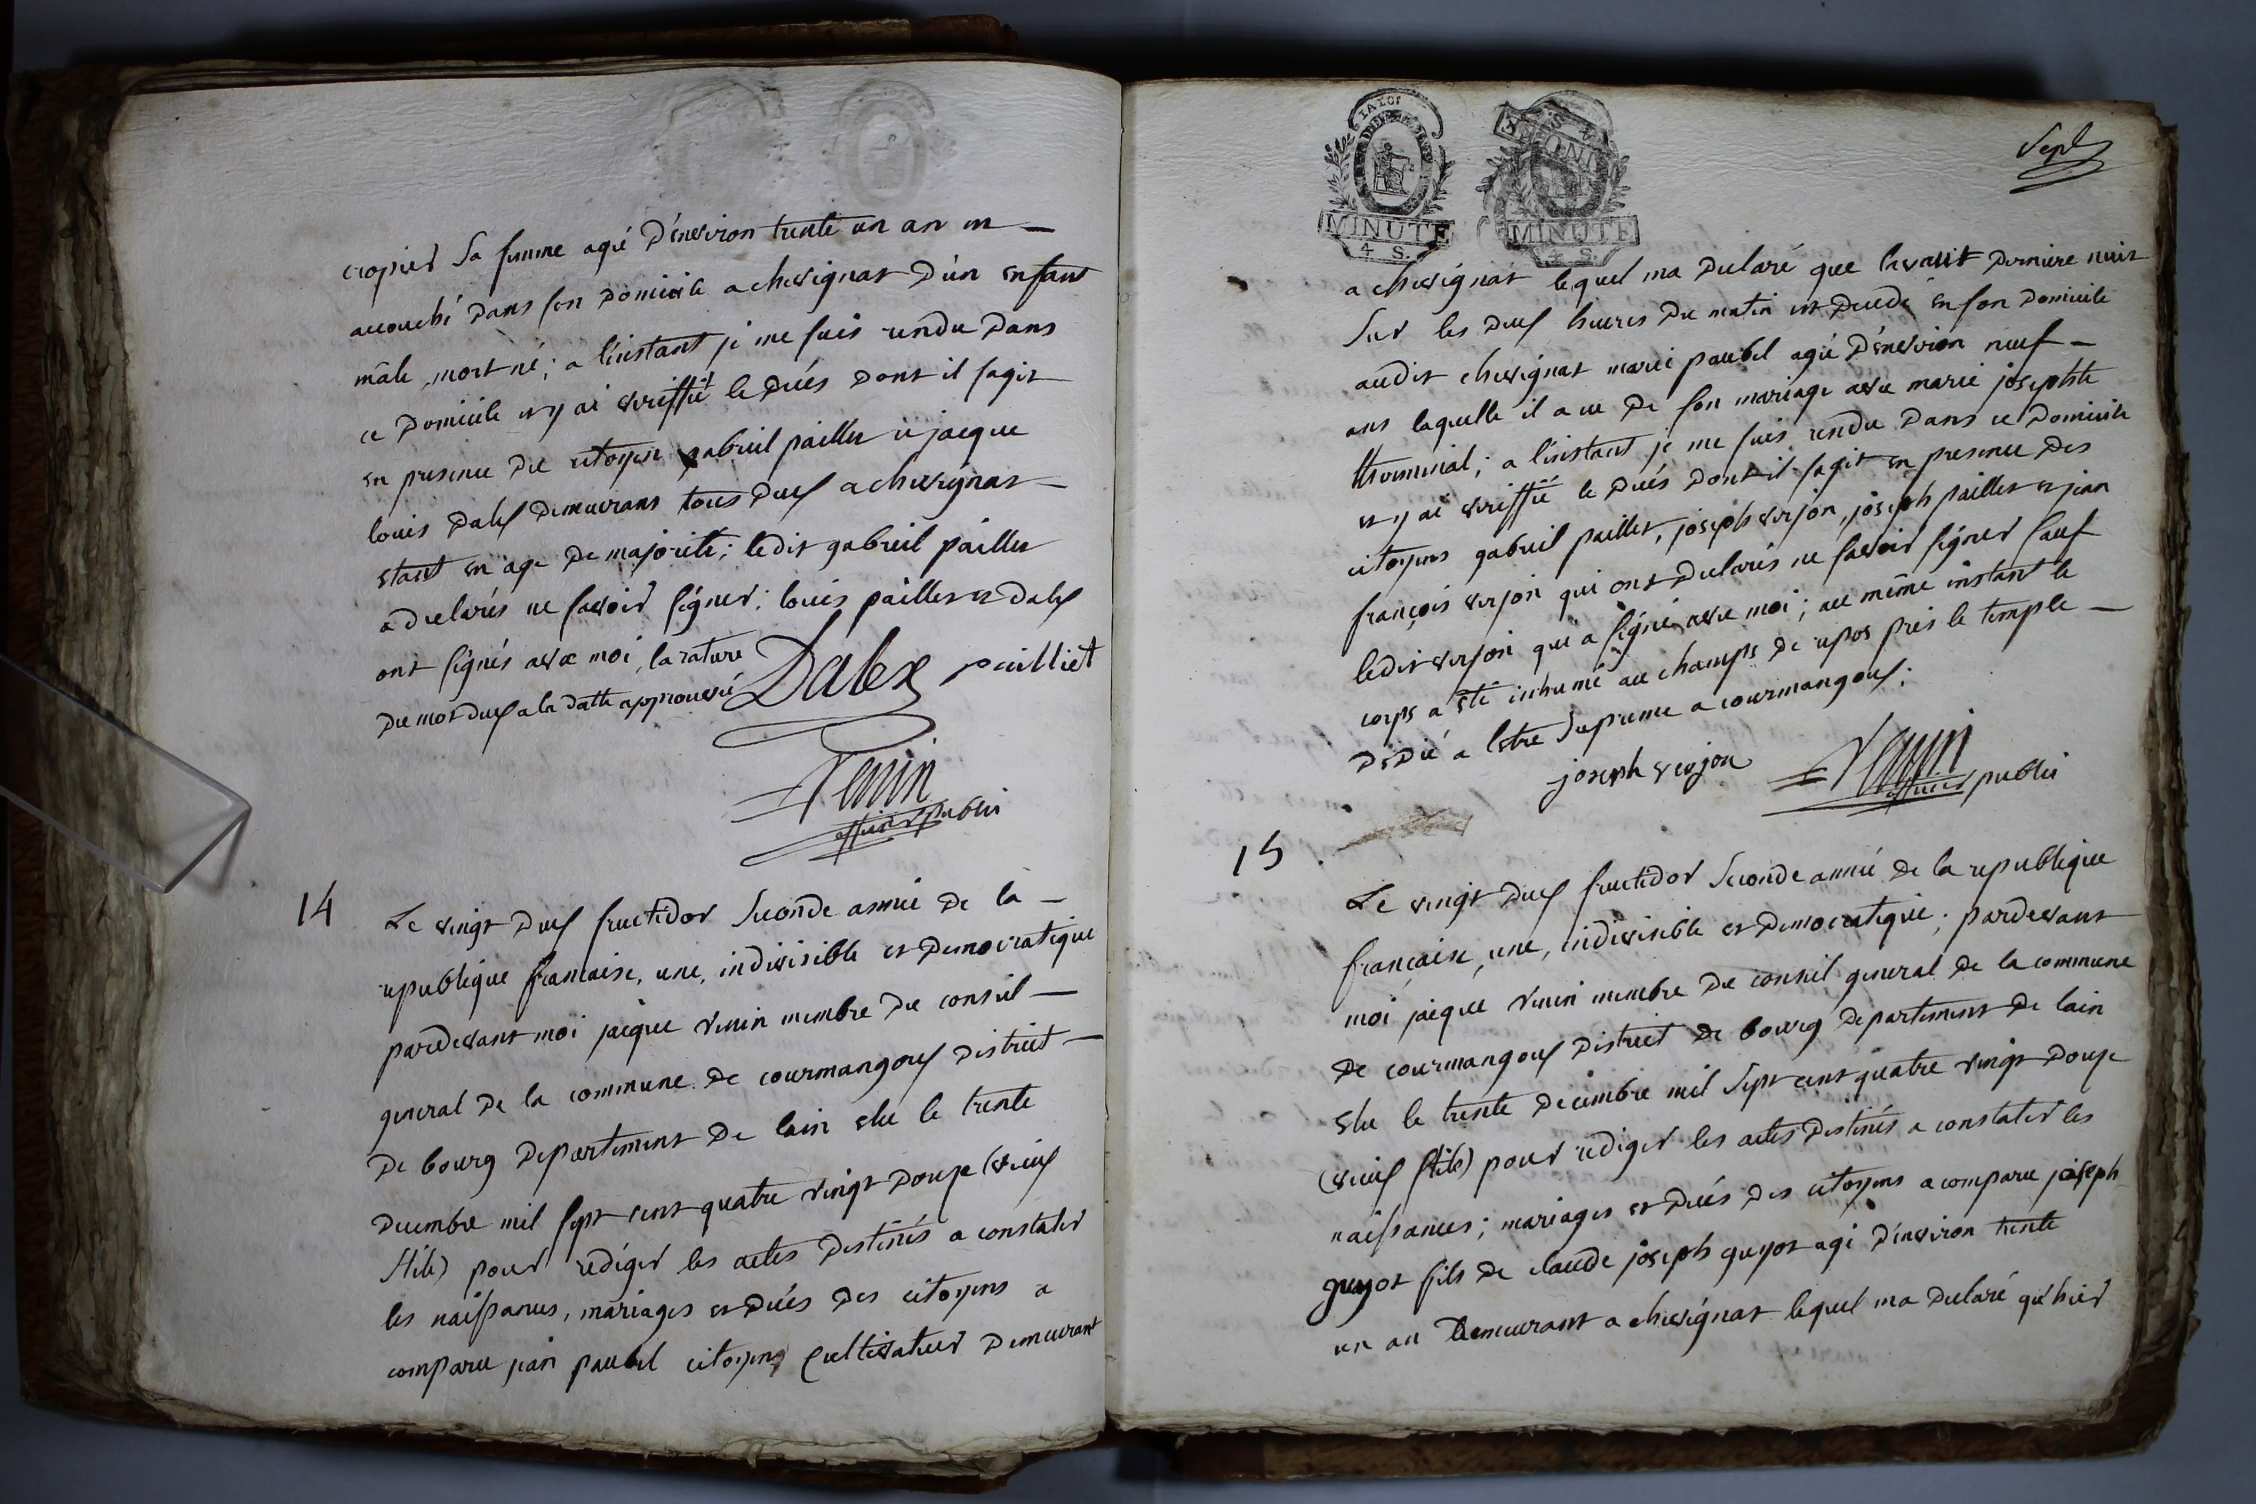 cropier Sa femme agé d'environ trente un an est
accouché dans son domicile a chevignat d'un enfant
mâle, mort né; a l'instant je me suis rendu dans
ce domicile et y ai veriffié le décés dont il sagit
en presence du citoyen gabriel paillet et jacque
louis dalex demeurans tous deux a chevignat
etant en age de majorité; ledit gabriel paillet
a declarés ne savoir signer; louis paillet et dalex
ont signés avec moi, la rature
du mot deux a la datte approuvé
Dalex pailliet
Venin
officier public
14
Le vingt deux fructidor Seconde année de la
republique francaise, une, indivisible et democratique
pardevant moi jacque Venin membre du conseil
general de la commune de courmangoux district
de bourg departement de lain elu le trente
decembre mil sept cent quatre vingt douze (vieux
stile) pour rediger les actes destinés a constater
les naissances, mariages et décés des citoyens a
comparu jean paubel citoyens Cultivateur demeurant
IA LOI
MINUTE
4 S.
MINUTE
4 S.
Sept
a chevignat lequel ma declaré que lavant derniere nuit
Sur les deux heures du matin est decedé en son domicile
audit chevignat marie paubel agé d'environ neuf
ans laquelle il a eu de son mariage avec marie josephte
; a l'instant je me suis rendu dans ce domicile
et y ai veriffié le décés dont il sagit en presence des
citoyens gabriel paillet, joseph verjon, joseph paillet et jean
françois verjon qui ont declarés ne savoir signer sauf
ledit verjon qui a signé avec moi; au même instant le
corps a été inhumé au champs de repos prés le temple
dedié a letre Supreme a courmangoux;
joseph verjon
Venin
officier public
15
Le vingt deux fructidor Seconde année de la republique
françaisse, une, indivisible et democratique; pardevant
moi jacque Venin membre du conseil general de la commune
de courmangoux district de bourg departement de lain
elu le trente decembre mil Sept cent quatre vingt douze
(vieux stile) pour rediger les actes destinés a constater les
naissances; mariages et décés des citoyens a comparu joseph
guyot fils de claude joseph guyot agé d'environ trente
un an demeurant a chevignat lequel ma declaré qu'hier